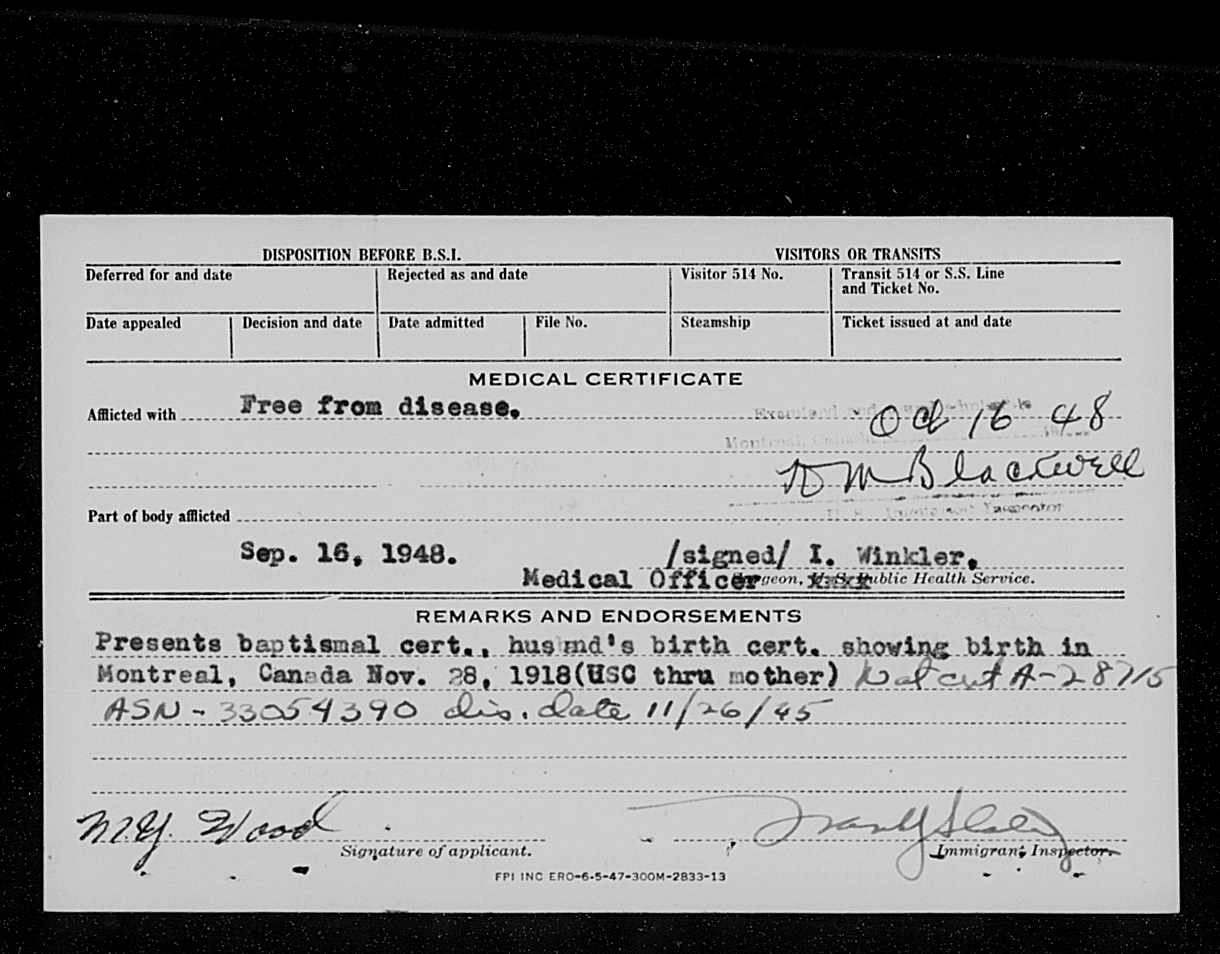 DISPOSITION BEFORE B.S.I. VISITORS OR TRANSITS
Deferred for and date Rejected as and date Visitor 514 No. Transit 514 or S.S. Line
and Ticket No.
Date appealed Decision and date Date admitted File No. Steamship Ticket issued at and date
MEDICAL CERTIFICATE
Afflicted with Free from disease. Oct 16 48
Montreal, Canada
H M Blackwell
Part of body afflicted
Sep. 16, 1948. /signed/ I. Winkler.
Medical Officer Public Health Service.
REMARKS AND ENDORSEMENTS
Presents baptismal cert., husband's birth cert. showing birth in
Montreal, Canada Nov. 28, 1918(USC thru mother) Nat cert A-28715
ASN - 33054390 dis. date 11/26/45
M.Y. Wood
Signature of applicant. Immigrant Inspector.
FPI INC ERO-6-5-47-300M-2833-13